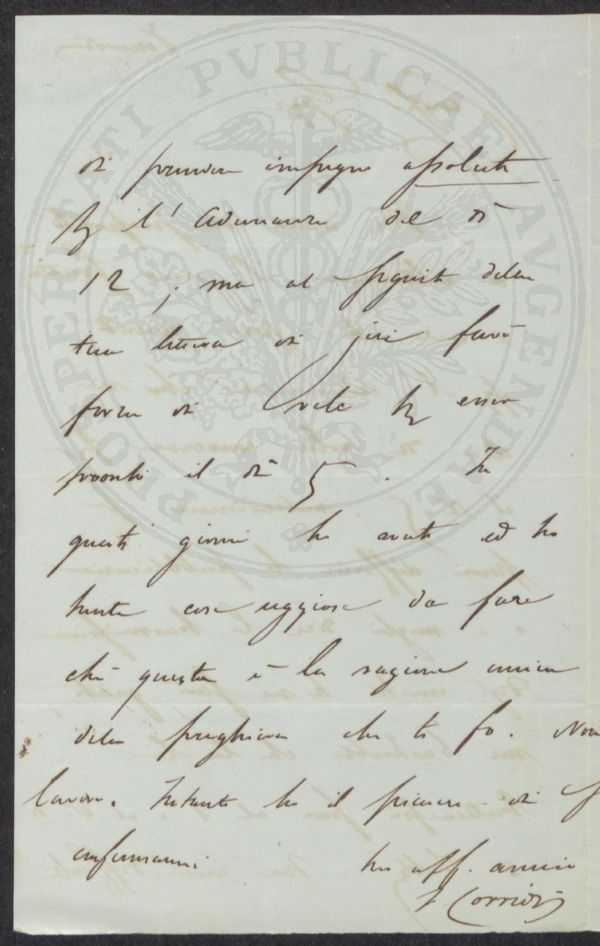 PROSPERITATI PVBLICAE AVGENDAE
di prendere impegno assoluto
per l'Adunanza del dì
12; ma al seguito della
tua lettera di jeri farò
forza di vele per esser
pronto il dì 5. In
questi giorni ho avuto ed ho
tante cose uggiose da fare
chè questa è la ragione unica
della preghiera che ti fo. Non
lavoro. Intanto ho il piacere di
confermarmi tuo aff. amico
Corridi